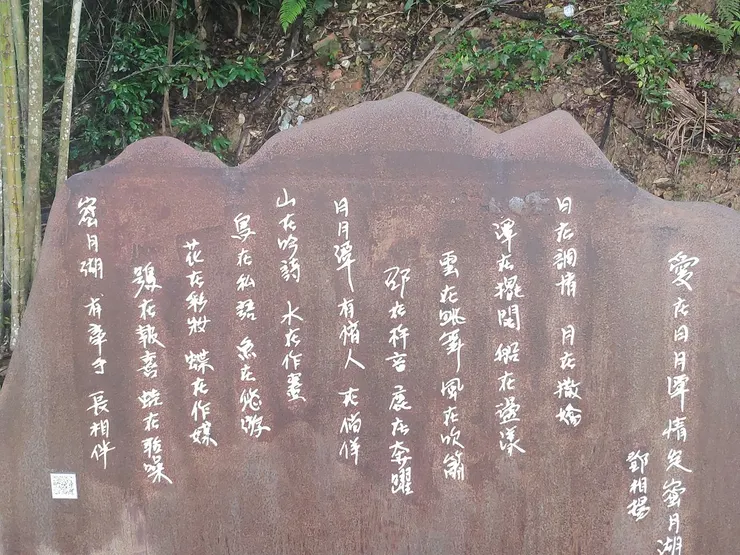 愛在日月潭 情定蜜月湖
鄧相揚
日在調情 月在撒嬌
潭在擺闊 船在盪漾
雲在跳舞 風在吹簫
邵在杵音 鹿在奔躍
日月潭 有情人 在徜徉
山在吟詩 水在作畫
鳥在私語 魚在悠游
花在彩妝 蝶在作媒
鵲在報喜 蛙在聒噪
蜜月湖 有牽手 長相伴